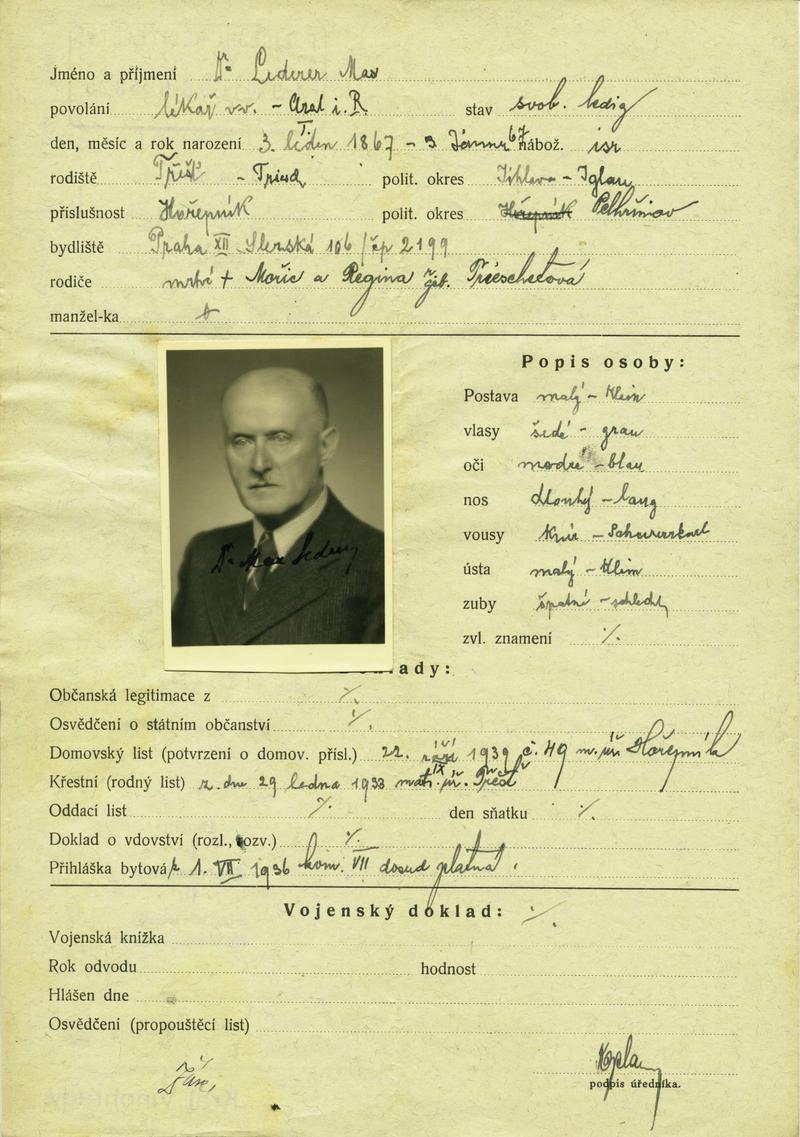 Jméno a příjmení Dr Lederer Max
povolání lékař vv. - Arzt i. R. stav svob. ledig
den, měsíc a rok narození 3. leden I. 1867 - 3 Jänner 67 nábož. isr
rodiště Třešť - Triesch polit. okres Jihlava - Iglau
příslušnost Hořepník polit. okres Hořepník Pelhřimov
bydliště Praha XII Slezská 106/čp 2199
rodiče mrtvi + Mořic a Regina
manžel-ka
Popis osoby:
Postava malý - klein
vlasy šedé - grau
oči modré - blau
nos dlouhý - lang
vousy knír -
ústa malý - klein
zuby špatné - schlecht
zvl. znamení ·/.
Dr Max Lederer
ady:
Občanská legitimace z ·/.
Osvědčení o státním občanství ·/.
Domovský list (potvrzení o domov. přísl.) 22. září 1939 č. 49 Hořepník
Křestní (rodný list) z. dne 29 ledna 1938 Třešť
Oddací list ·/. den sňatku ·/.
Doklad o vdovství (rozl., rozv.) ·/.
Přihláška bytová 1. VII 1936 kom. VII dosud platná
Vojenský doklad: ·/.
Vojenská knížka
Rok odvodu hodnost
Hlášen dne
Osvědčení (propouštěcí list)
podpis úředníka.